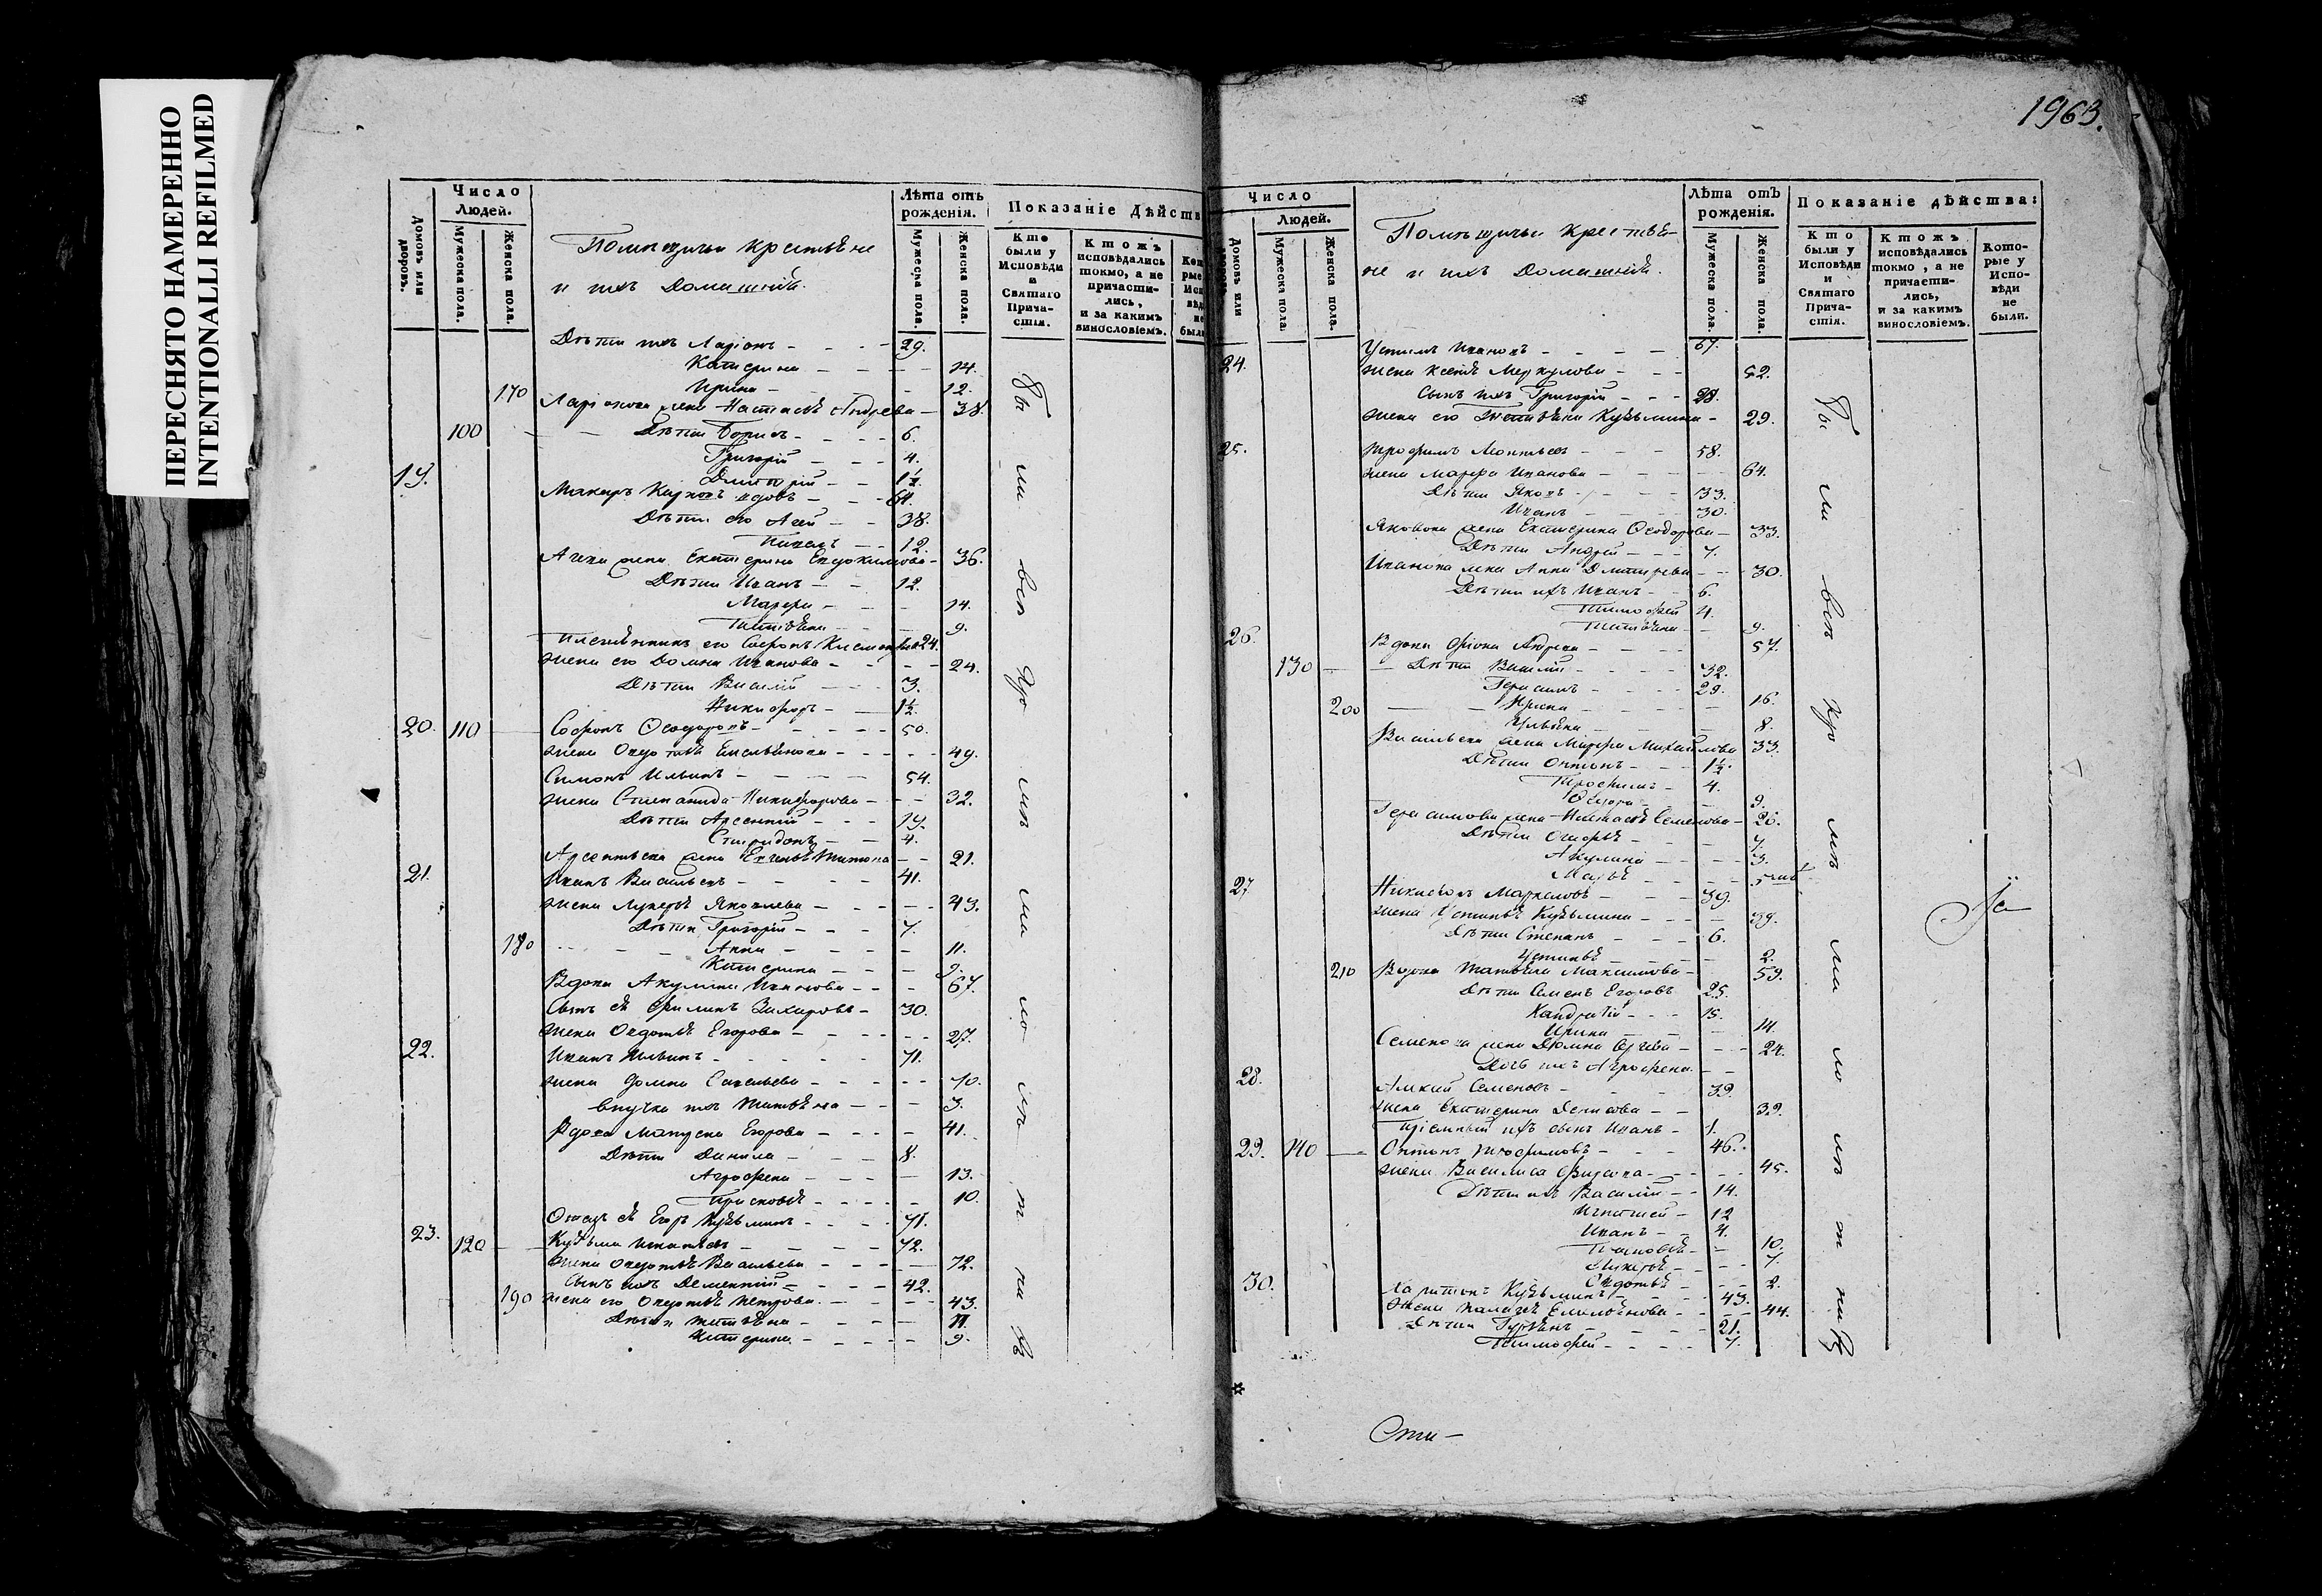 ПЕРЕСНЯТО НАМЕРЕННО
INTENTIONALLI REFILMED
1963.
Число
Людей.
Домовъ или дворовъ.
Мужеска пола.
Женска пола.
Помѣщичьи крестьяне
и ихъ домашнiѣ.
Лѣта отъ
рожденія.
Мужеска пола.
Женска пола.
Показаніе Дѣйств
Кто были у Исповѣди и Святаго Причастія.
Ктожъ исповѣдались токмо, а не причастились, и за какимъ винословіемъ.
Дѣти ихъ Ларiонъ 29.
Катерина 14.
170 Ирина 12.
Ларiонова жена Настасья Андрева 38.
100 Дѣти Борисъ 6.
Григорiй 4.
19. Дмитрiй 1½
Макаръ Карповъ вдовъ 61.
Дѣти его Агей 38.
12.
жена Екатерина Евдокимова 36.
Дѣти Иванъ 12.
Марфа 14.
Татьяна 9.
Племянникъ его Софронъ 24.
жена его Домна Иванова 24.
Дѣти Василiй 3.
Никифоръ 1½
20. 110 Софронъ Ѳеодоровъ 50.
жена Овдотья Емельянова 49.
Симонъ Ильинъ 54.
жена Степанида Никифорова 32.
Дѣти Арсентiй 19.
Спиридонъ 4.
Арсентьева жена Титова 21.
21. Иванъ Васильевъ 41.
жена Лукерья Яковлева 43.
Дѣти Григорiй 7.
180 Анна 11.
Катерина 9.
Вдова Акулина Иванова 67.
Сынъ ея Филипъ Захаровъ 30.
жена Овдотья Егорова 27.
22. Иванъ Ильинъ 71.
жена Домна Савельева 70.
внучка ихъ Татьяна 3.
Вдова Егорова 41.
Дѣти Данила 8.
Агрофена 13.
Прасковья 10.
Отецъ ея Егоръ Кузьминъ 71.
23. 120 Кузьма Игнатьевъ 72.
жена Овдотья Васильева 72.
Сынъ ихъ Дементiй 42.
190 жена его Овдотья Петрова 43.
Дѣти Татьяна 11.
Катерина 9.
Число
Людей.
Домовъ или
Мужеска пола.
Женска пола.
Помѣщичьи крестья-
не и ихъ домашнiѣ.
Лѣта отъ
рожденія.
Мужеска пола.
Женска пола.
Показаніе дѣйства:
Кто были у Исповѣди и Святаго Причастія.
Ктожъ исповѣдались токмо, а не причастились, и за какимъ винословіемъ.
Которые у Исповѣди не были.
24. Устимъ Ивановъ 67.
жена Ксенья Меркулова 52.
Сынъ ихъ Григорiй 28.
жена его Кузьмина 29.
25. Трофимъ Леонтьевъ 58.
жена Марфа Иванова 64.
Дѣти Яковъ 33.
Иванъ 30.
Яковова жена Екатерина Ѳеодорова 33.
Дѣти Андрей 7.
Иванова жена Анна Дмитрева 30.
Дѣти ихъ Иванъ 6.
Тимофей 4.
Татьяна 9.
26. Вдова Андрева 57.
130 Дѣти Василiй 32.
Герасимъ 29.
200 Ирина 16.
Ульяна 8.
Васильева жена Марфа Михайлова 33.
Дѣти Онтонъ 1½.
Трофимъ 4.
9.
Герасимова жена Настасья Семенова 26.
Дѣти 7.
Акулина 3.
Марья 5
27. Маркеловъ 39.
жена Устинья Кузьмина 39.
Дѣти Степанъ 6.
Устинья 2.
210 Вдова Татьяна Максимова 59.
Дѣти Семенъ Егоровъ 25.
Кандратiй 15.
Ирина 14.
Семенова жена Домна 24.
Дочь ихъ Агрофена
28. Семеновъ 39.
жена Екатерина Денисова 39.
Прiемный ихъ сынъ Иванъ 1.
29. 140 Онтонъ Трофимовъ 46.
жена Василиса 45.
Дѣти ихъ Василiй 14.
Игнатей 12
Иванъ 4.
10.
Лукерья 7.
Овдотья 2.
30. Харитонъ Кузьминъ 43.
жена Палагея Емельянова 44.
Дѣти 21.
Тимофей 7.
Оти-